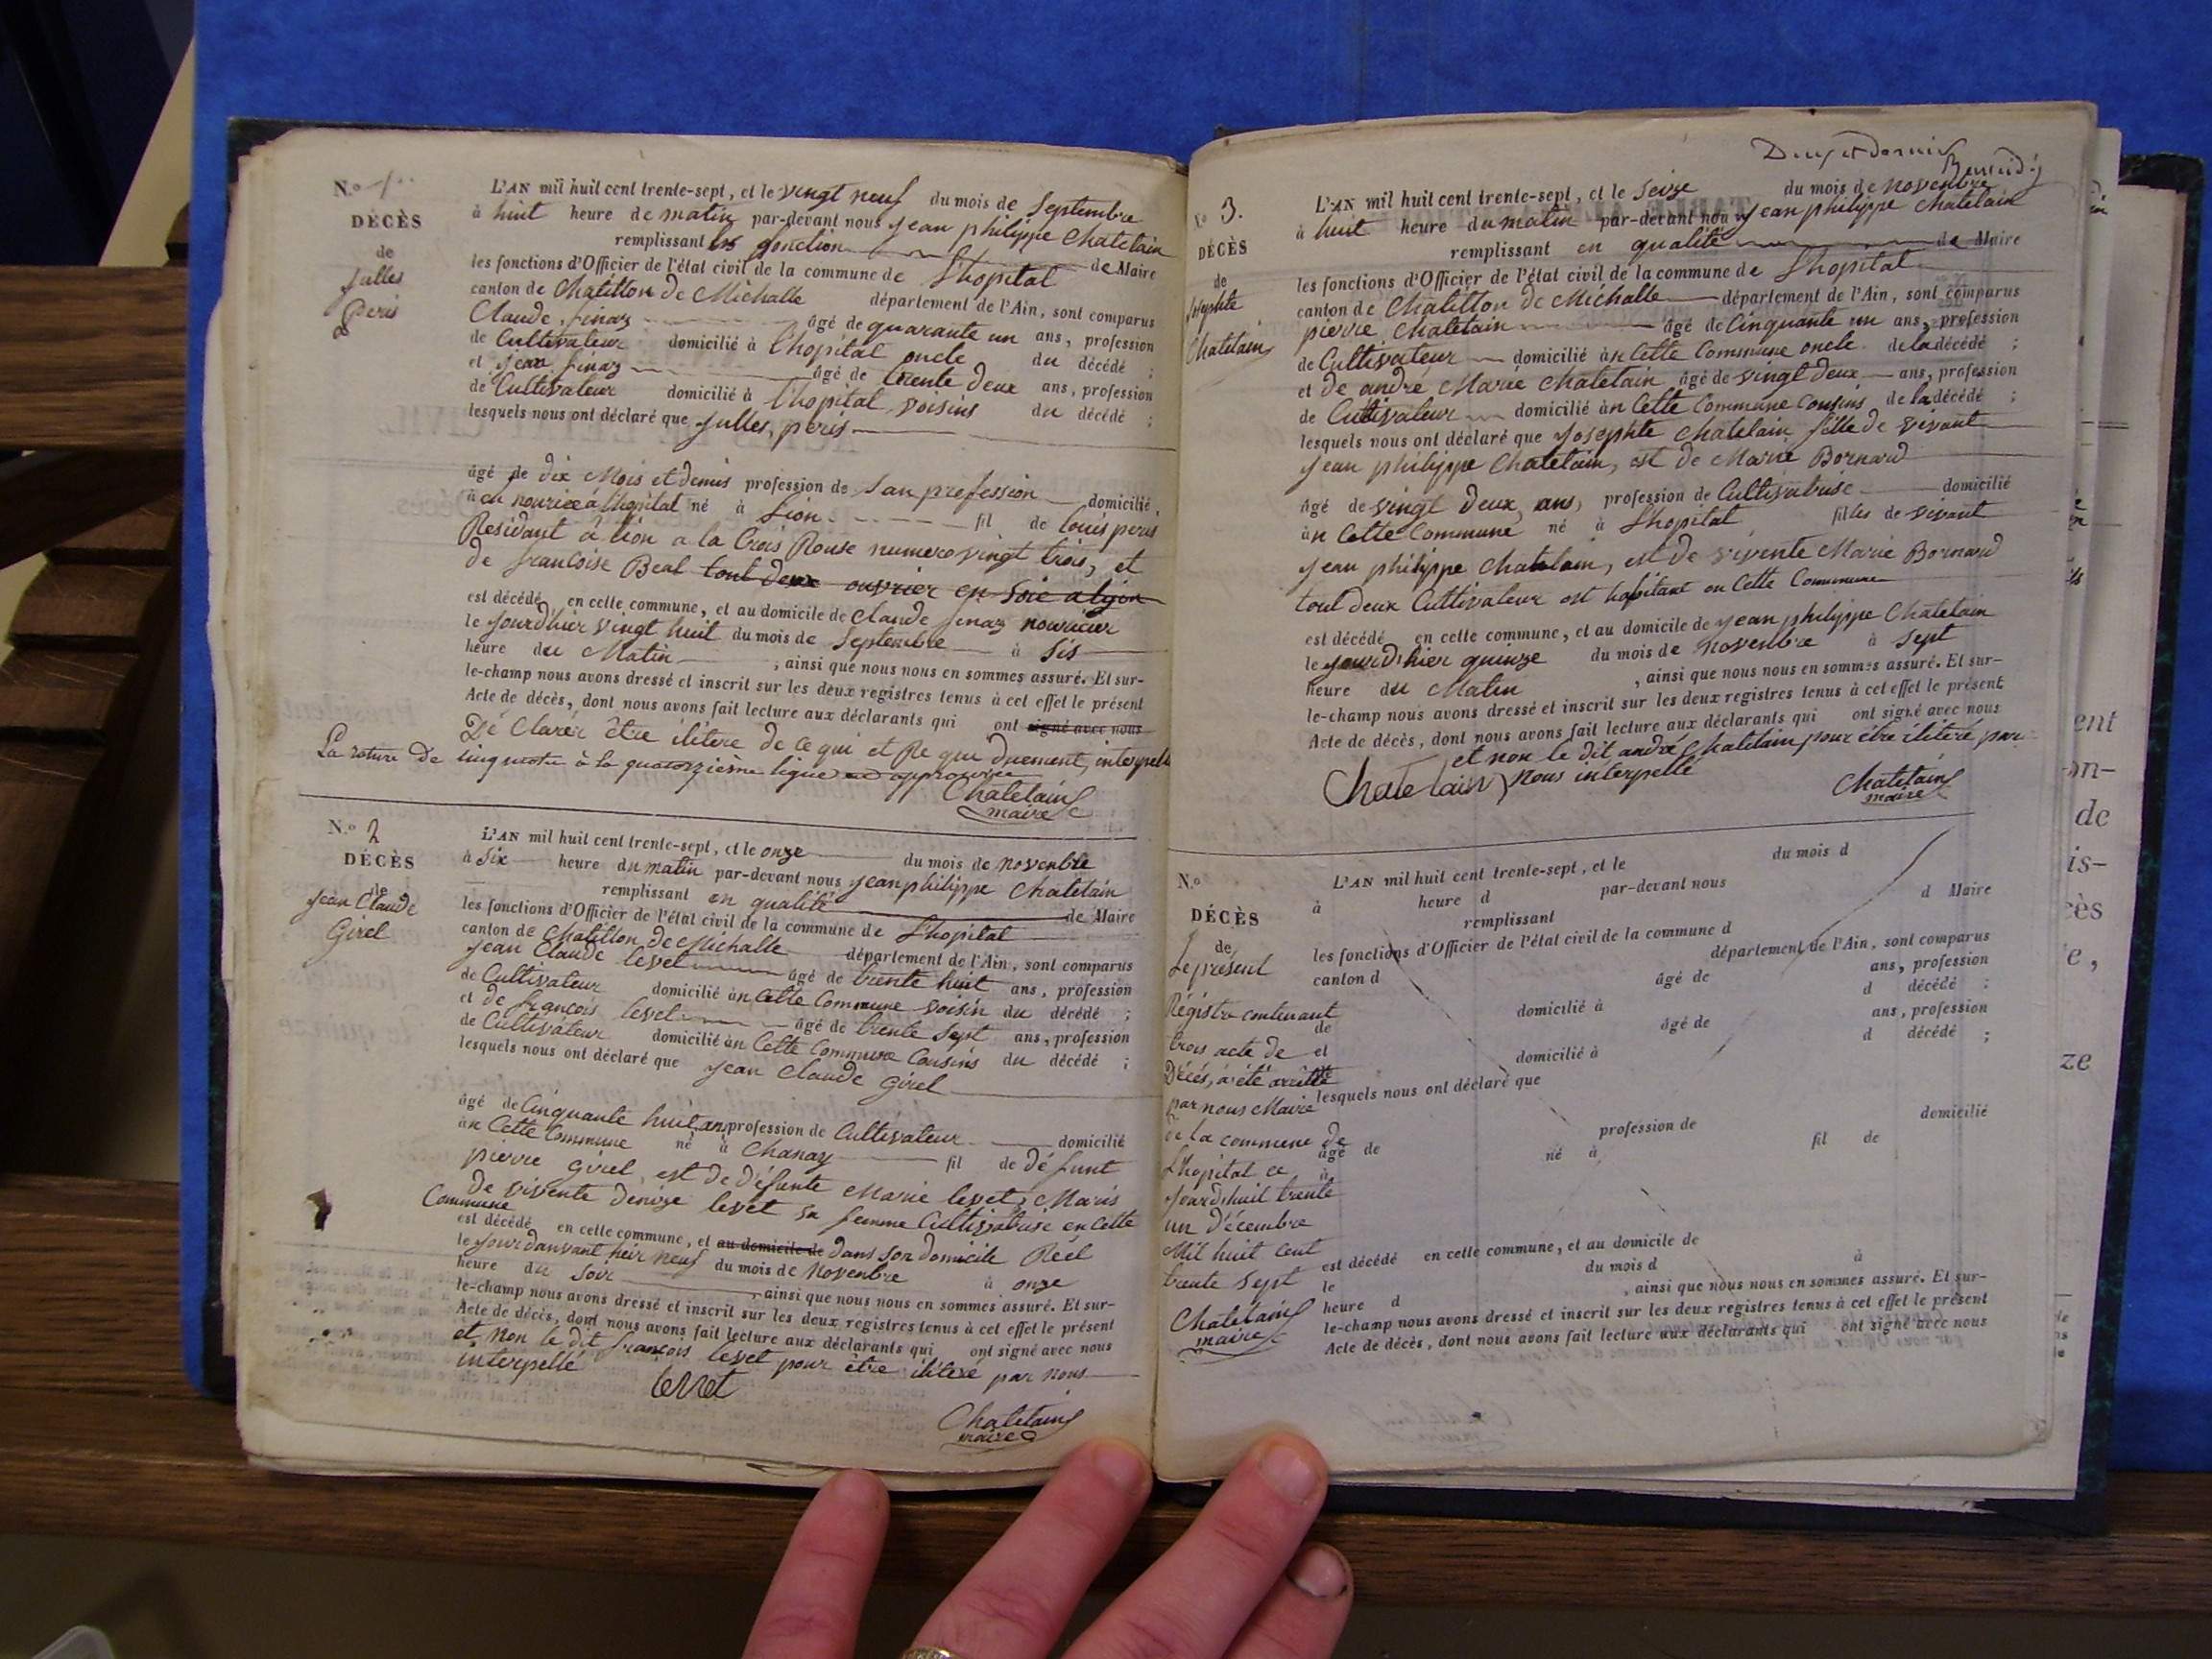 N.o 1..
DÉCÈS
de
Julles
Peris
L'AN mil huit cent trente-sept, et le vingt neuf du mois de Septembre
à huit heure de matin par-devant nous jean philippe Chatelain
remplissant les fonction de Maire
les fonctions d'Officier de l'état civil de la commune de L'hopital
canton de Chatillon de Michalle département de l'Ain, sont comparus
Claude finaz âgé de quarante un ans, profession
de Cultivateur domicilié à L'hopital oncle du décédé ;
et jean finaz âgé de trente deux ans, profession
de Cultivateur domicilié à L'hopital voisins du décédé ;
lesquels nous ont déclaré que Julles, peris
âgé de dix Mois et demis profession de San profession domicilié,
à en nourice à L'hopital né à Lion fil de louis peris
Residant à lion a la Crois Rouse numero vingt trois, et
de francoise Beal tout deux ouvrier en Soie a lyon
est décédé en cette commune, et au domicile de Claude finaz nouricier
le jourdhier vingt huit du mois de Septembre à Sis
heure du Matin , ainsi que nous nous en sommes assuré. Et sur-
le-champ nous avons dressé et inscrit sur les deux registres tenus à cet effet le présent
Acte de décès, dont nous avons fait lecture aux déclarants qui ont signé avec nous
Dé Clarér être ilitere de ce qui et Re qui duement, interpellé
La roture de cinq mots à la quatorzième ligne approuvée
Chatelain
maire
N.o 2
DÉCÈS
de
Jean Claude
Girel
L'AN mil huit cent trente-sept, et le onze du mois de novenbre
à Six heure du matin par-devant nous jean philippe Chatelain
remplissant en qualité de Maire
les fonctions d'Officier de l'état civil de la commune de L'hopital
canton de Chatillon de Michalle département de l'Ain, sont comparus
jean Claude levet âgé de trente huit ans, profession
de Cultivateur domicilié àn Cette Commune voisin du décédé ;
et de françois levet âgé de trente Sept ans, profession
de Cultivateur domicilié àn Cette Commune Cousins du décédé ;
lesquels nous ont déclaré que jean Claude Girel
âgé de Cinquante huit ans profession de Cultivateur domicilié
àn Cette Commune né à Chanay fil de dé funt
pierre Girel, est de défunte Marie levet, Maris
de vivente denize levet sa femme Cultivatrise en Cette
Commune
est décédé en cette commune, et au domicile de dans son domicile Réel
le jourdavant heir neuf du mois de Novenbre à onze
heure du Soir , ainsi que nous nous en sommes assuré. Et sur-
le-champ nous avons dressé et inscrit sur les deux registres tenus à cet effet le présent
Acte de décès, dont nous avons fait lecture aux déclarants qui ont signé avec nous
et non le dit françois levet pour être ilitere par nous
interpellé
levet
Chatelain
maire
N.o 3.
DÉCÈS
de
Josephte
Chatelain
L'AN mil huit cent trente-sept, et le Seize du mois de novenbre
à huit heure du matin par-devant nous jean philippe Chatelain
remplissant en qualité de Maire
les fonctions d'Officier de l'état civil de la commune de L'hopital
canton de Chatillon de Michalle département de l'Ain, sont comparus
pierre Chatelain âgé de Cinquante un ans, profession
de Cultivateur domicilié àn Cette Commune oncle de la décédé ;
et de andré Marie Chatelain âgé de vingt deux ans, profession
de Cultivateur domicilié àn Cette Commune Cousins de la décédé ;
lesquels nous ont déclaré que Josephte Chatelain fille de vivant
jean philippe Chatelain, est de Marie Bornard
âgé de vingt deux ans, profession de Cultivatrise domicilié
àn Cette Commune né à L'hopital filles de vivant
jean philippe Chatelain, est de vivente Marie Bornard
tout deux Cultivateur est habitant en Cette Commune
est décédé en cette commune, et au domicile de jean philippe Chatelain
le jourd'hier quinze du mois de novenbre à Sept
heure du Matin , ainsi que nous nous en sommes assuré. Et sur-
le-champ nous avons dressé et inscrit sur les deux registres tenus à cet effet le présent
Acte de décès, dont nous avons fait lecture aux déclarants qui ont signé avec nous
et non le dit andré Chatelain pour être ilitere par
Chatelain nous interpellé
Chatelain
maire
N.o
DÉCÈS
de
Le présent
Régistre contenant
trois acte de
Décés, a été arrêtté
par nous Maire
de la commune de
L'hopital ce
jourd'huil trente
un décembre
Mil huit cent
trente Sept
Chatelain
maire
L'AN mil huit cent trente-sept, et le du mois d
à heure d par-devant nous
remplissant d Maire
les fonctions d'Officier de l'état civil de la commune d
canton d département de l'Ain, sont comparus
âgé de ans, profession
de domicilié à d décédé ;
et âgé de ans, profession
de domicilié à d décédé ;
lesquels nous ont déclaré que
âgé de profession de domicilié
à né à fil de
est décédé en cette commune, et au domicile de
le du mois d à
heure d , ainsi que nous nous en sommes assuré. Et sur-
le-champ nous avons dressé et inscrit sur les deux registres tenus à cet effet le présent
Acte de décès, dont nous avons fait lecture aux déclarants qui ont signé avec nous